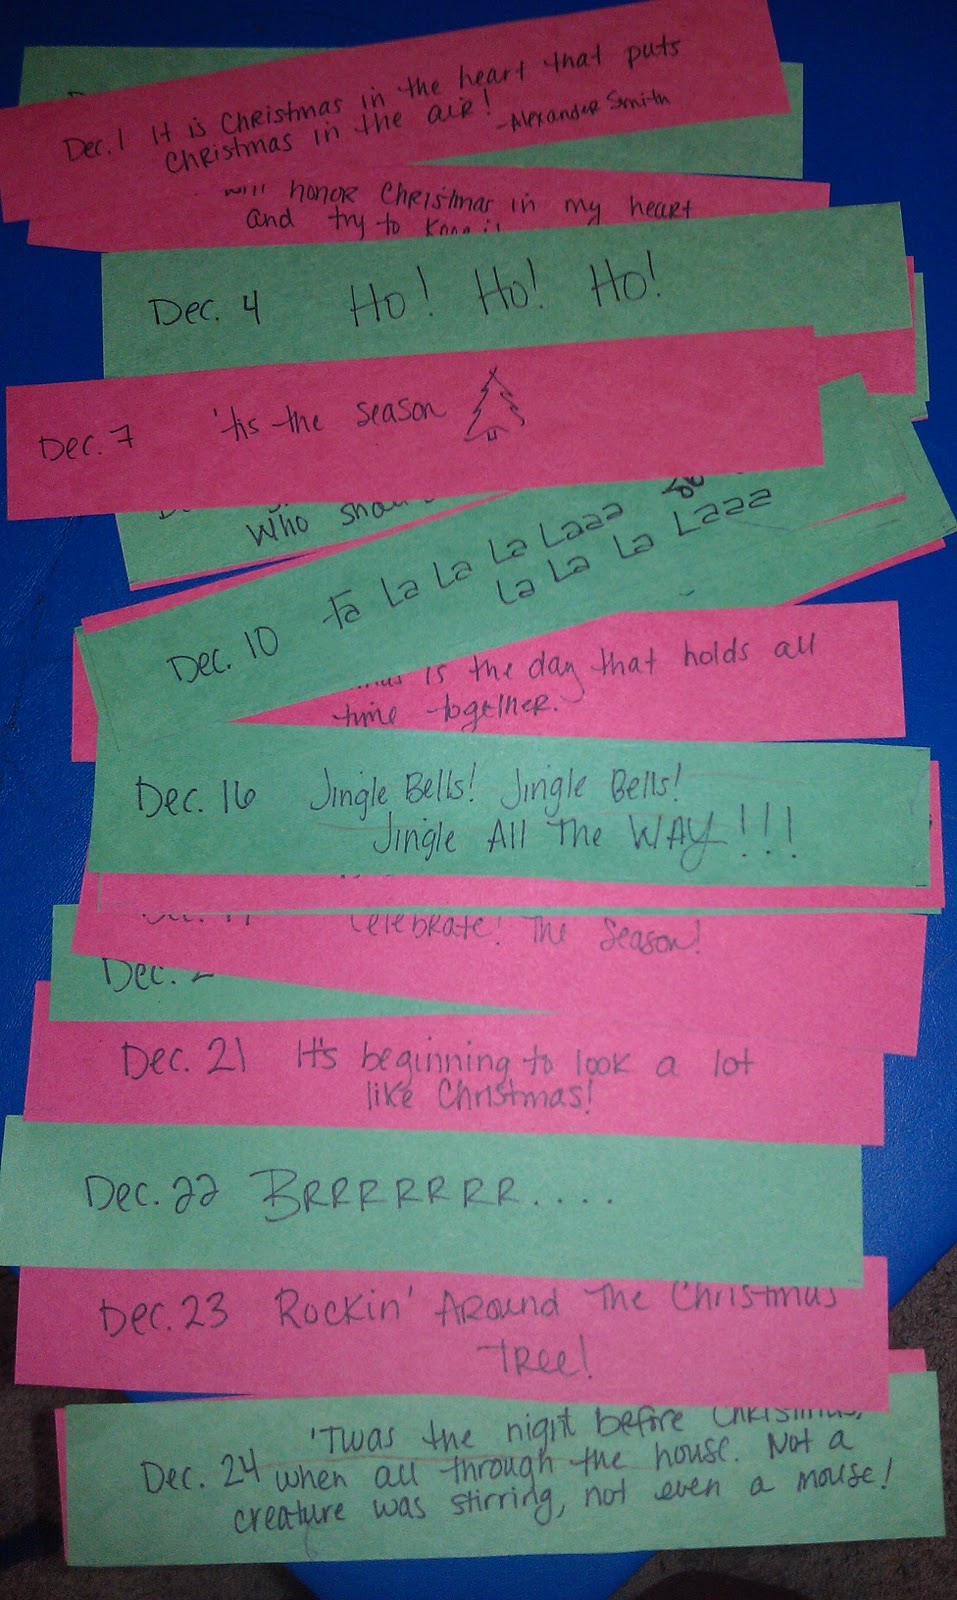 Dec. 1 It is Christmas in the heart that puts
Christmas in the air!
-Alexander Smith
will honor Christmas in my heart
and try to keep it
Dec. 4 Ho! Ho! Ho!
Dec. 7 'tis the season
Who
Dec. 10 Fa La La La Laaa
La La La Laaa
is the day that holds all
time together.
Dec. 16 Jingle Bells! Jingle Bells!
Jingle All The WAY!!!
Celebrate! The Season!
Dec. 2
Dec. 21 It's beginning to look a lot
like Christmas!
Dec. 22 BRRRRRRR....
Dec. 23 Rockin' Around The Christmas
Tree!
'Twas the night before Christmas,
Dec. 24 when all through the house. Not a
creature was stirring, not even a mouse!